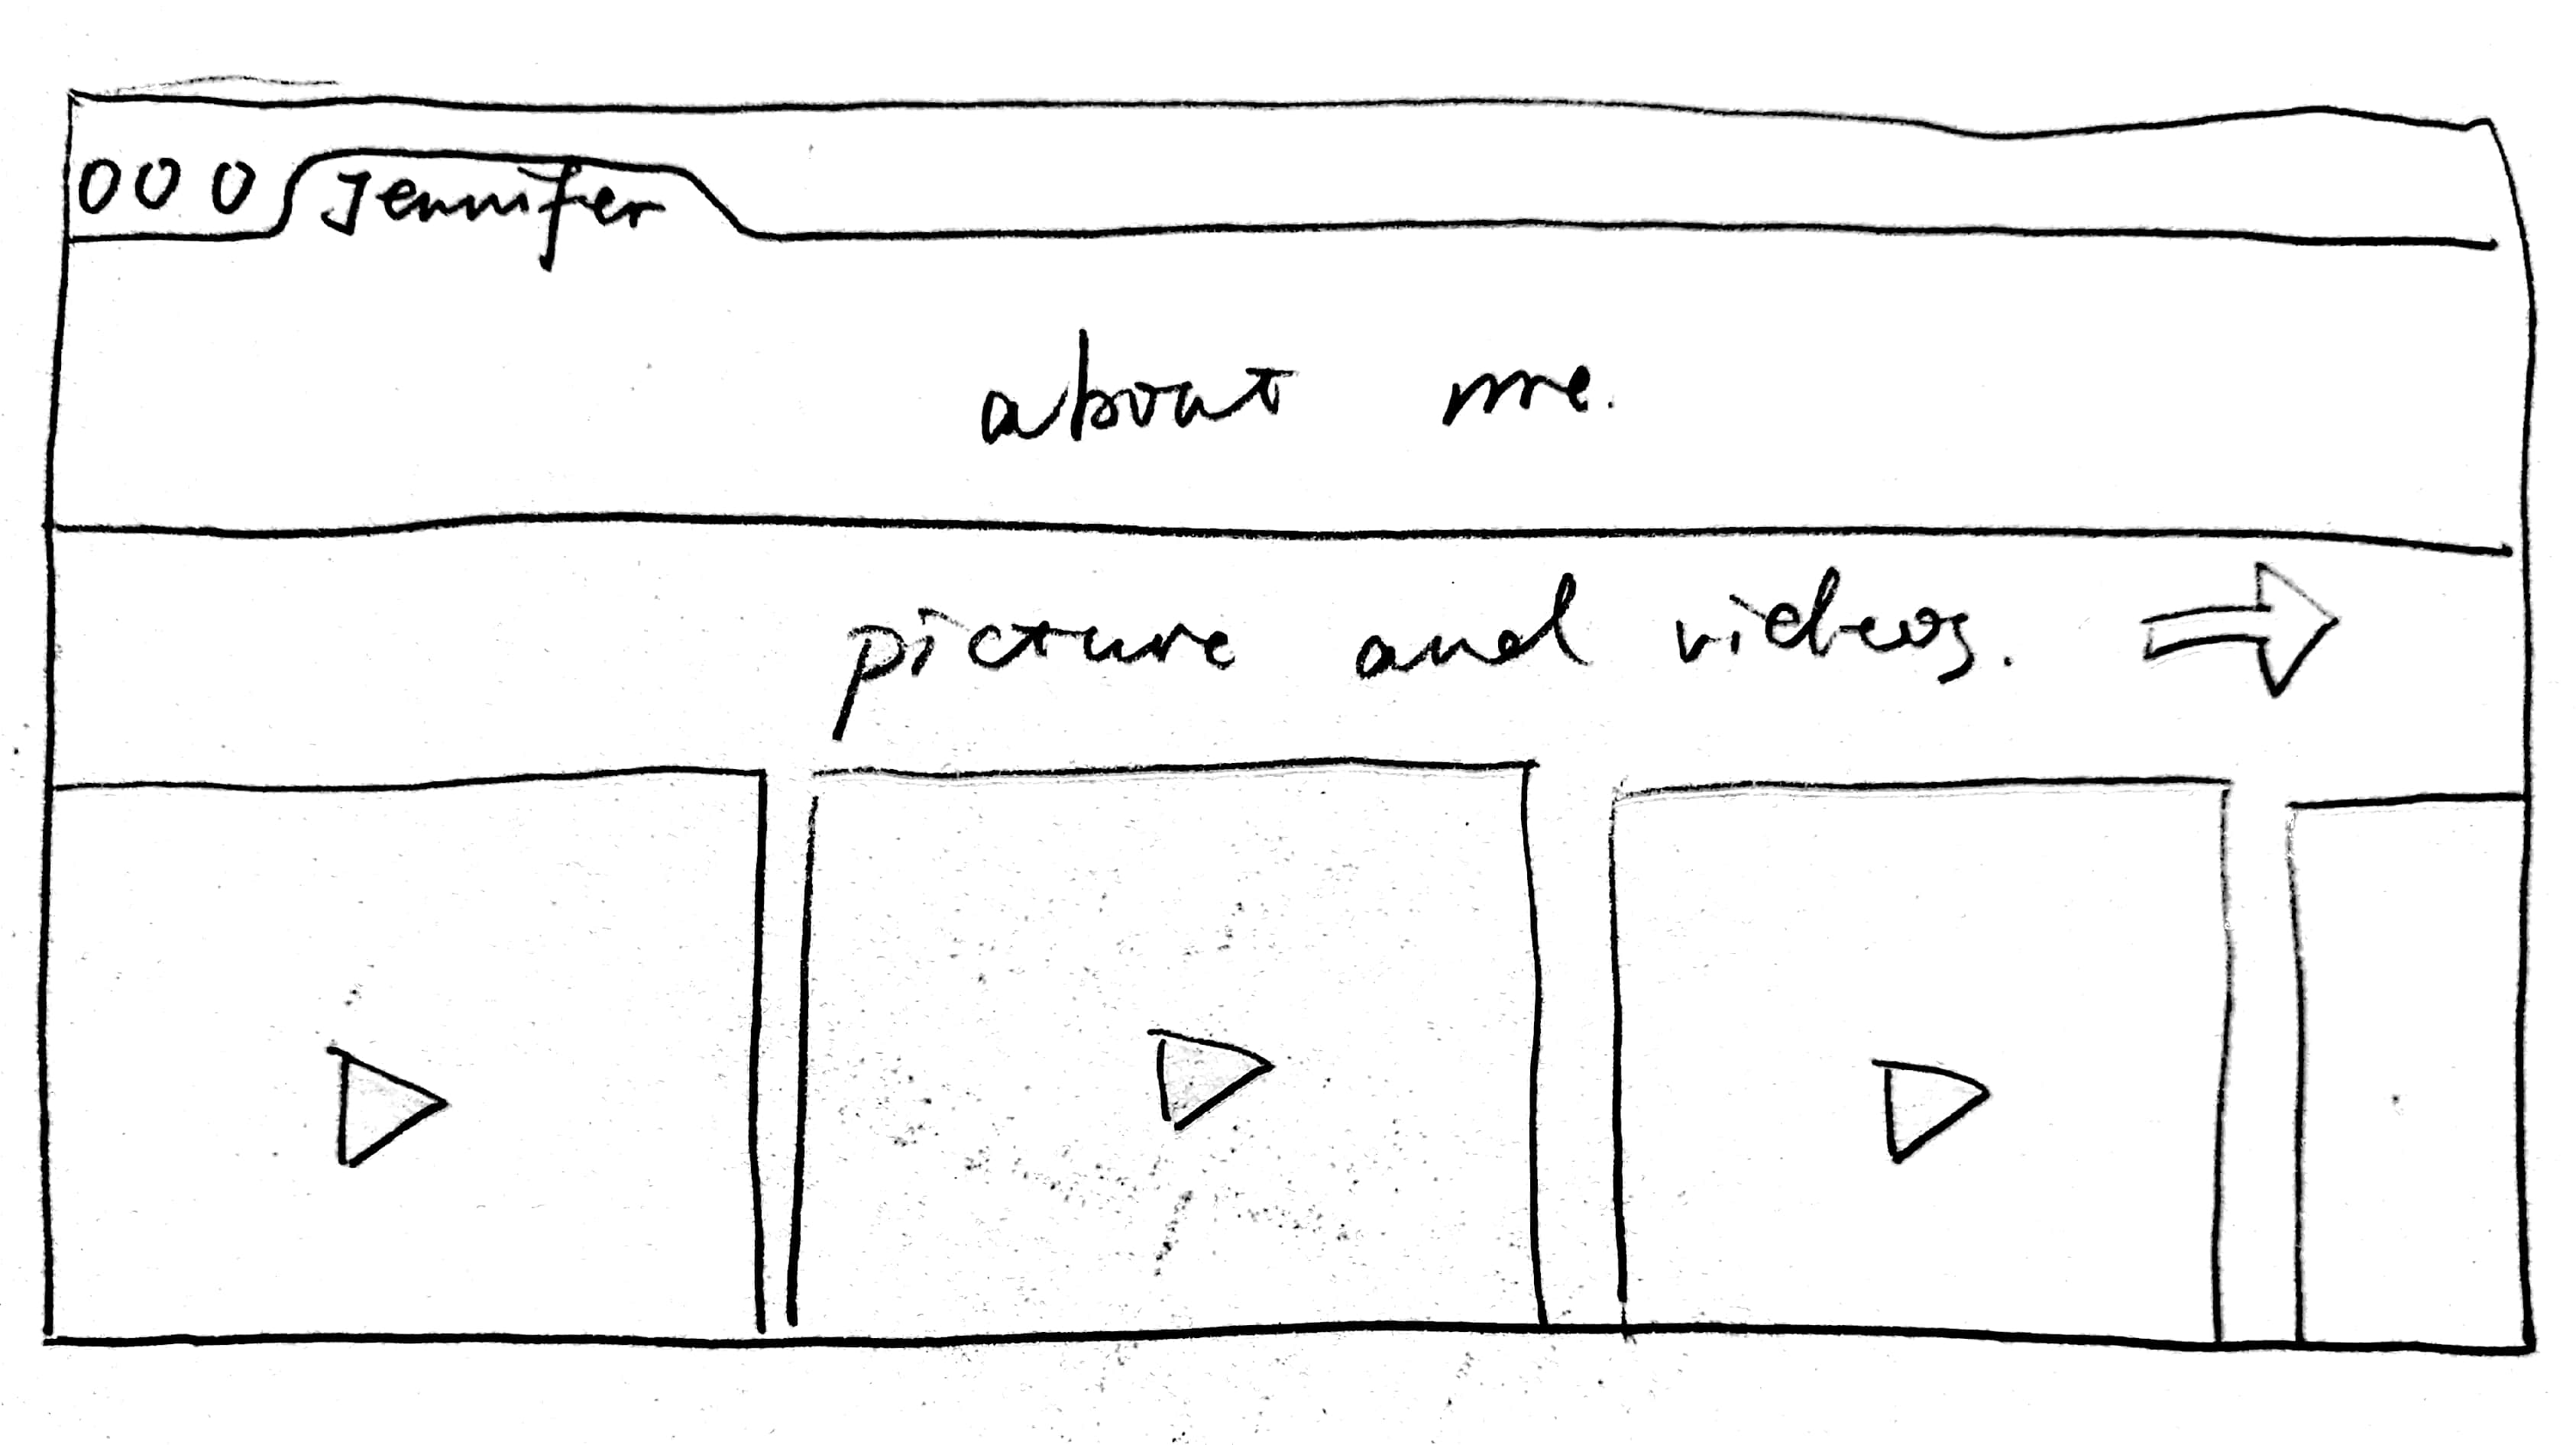 Jennifer
about me.
picture and videos.